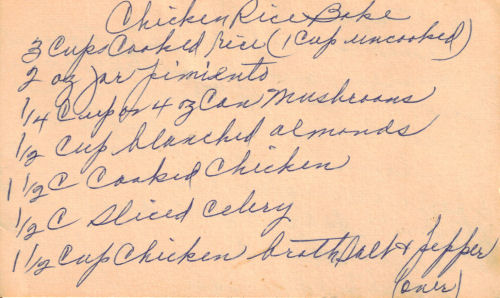 Chicken Rice Bake
3 Cups Cooked rice (1 Cup uncooked)
2 oz jar pimiento
1/4 Cup or 4 oz Can Mushrooms
1/2 Cup blanched almonds
1 1/2 C Cooked Chicken
1/2 C sliced celery
1 1/2 Cup Chicken broth, Salt & Pepper
(over)